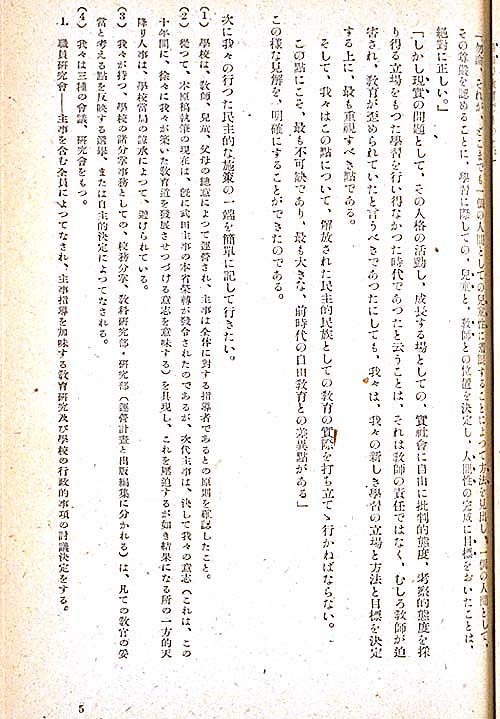 その尊嚴を認めることに、學習に際しての、兒童と、教師との位置を決定し、人間性の完成に目標をおいたことは、
絕對に正しい。」
「しかし現實の問題として、その人格の活動し、成長する場としての、實社會に自由に批判的態度、考察的態度を採
り得る立場をもつた學習を行い得なかつた時代であつたと云うことは、それは教師の責任ではなく、むしろ教師が迫
害され、教育が歪められていたと言うべきであつたにしても、我々は、我々の新しき學習の立場と方法と目標を決定
する上に、最も重視すべき點である。
そして、我々はこの點について、解放された民主的民族としての教育の實際を打ち立てゝ行かねばならない。
この點にこそ、最も不可缺であり、最も大きな、前時代の自由教育との差異點がある」
この樣な見解を、明確にすることができたのである。
次に我々の行つた民主的な施策の一端を簡單に記して行きたい。
(1) 學校は、教師、兒童、父母の總意によつて運營され、主事は全体に對する指導者であるとの原則を確認したこと。
(2) 從つて、本原稿執筆の現在は、旣に武田主事の本省榮轉が發令されたのであるが、次代主事は、決して我々の意志(これは、この
十年間に、徐々に我々が築いた教育道を發展させつづける意志を意味する)を具現し、これを壓迫するが如き結果になる所の一方的天
降り人事は、學校當局の諒承によつて、避けられている。
(3) 我々が持つ、學校の諸分掌事務としての、校務分掌、教科研究部・研究部(運營計畫と出版編集に分かれる)は、凡ての教官の妥
當と考える點を反映する選擧、または自主的決定によつてなされる。
(4) 我々は三種の會議、硏究會をもつ。
1. 職員硏究會——主事を含む全員によつてなされ、主事指導を加味する教育硏究及び學校の行政的事項の討議決定をする。
5